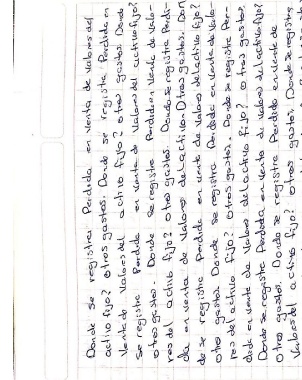 Donde se registra Perdida en venta de valores del
activo fijo? otros gastos. Donde se registra Perdida en
Venta de Valores del activo fijo? otros gastos. Donde
se registra Perdida en venta de Valores del activo fijo?
otros gastos. Donde se registra Perdida en Venta de Valo-
res del activo fijo? otros gastos. Donde se registra Perdi-
da en venta de Valores del activo. Otros gastos. Don
de se registra Perdida en venta de Valores del activo fijo?
otros gastos. Donde se registra Perdida en venta de Valo-
res del activo fijo? otros gastos. Donde se registra Per-
dida en venta de Valores del activo fijo? otros gastos.
Donde se registra Perdida en Venta de Valores del activo fijo?
otros gastos. Donde se registra Perdida en venta de
Valores del activo fijo? otros gastos. Donde se registra